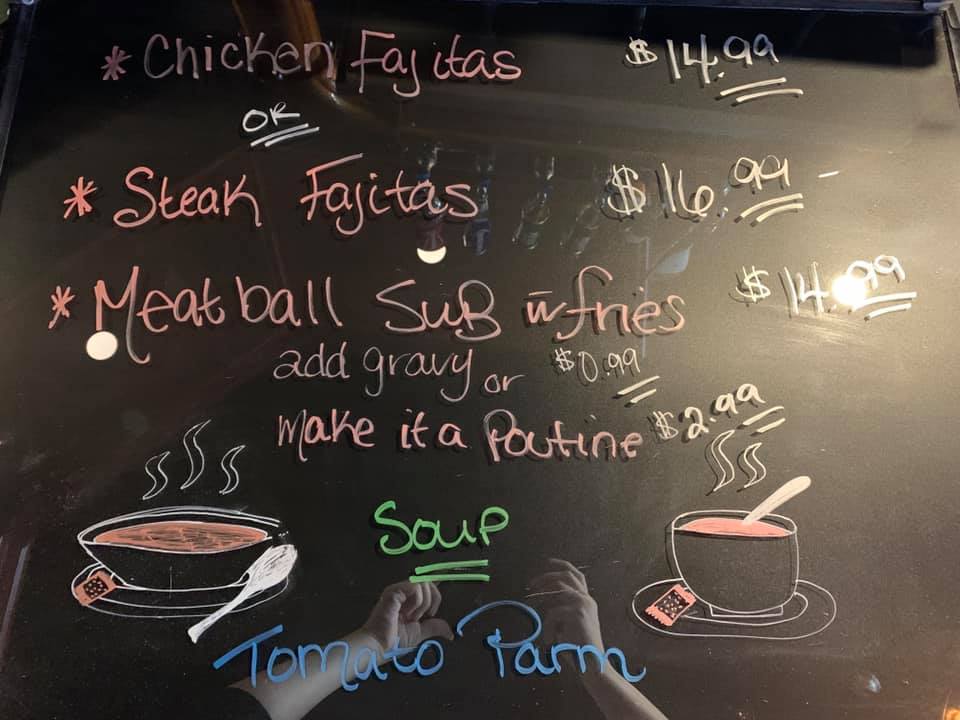 * Chicken Fajitas $14.99
OR
* Steak Fajitas $16.99
* Meatball SuB w fries $14.99
add gravy or $0.99
make it a Poutine $2.99
Soup
Tomato Parm